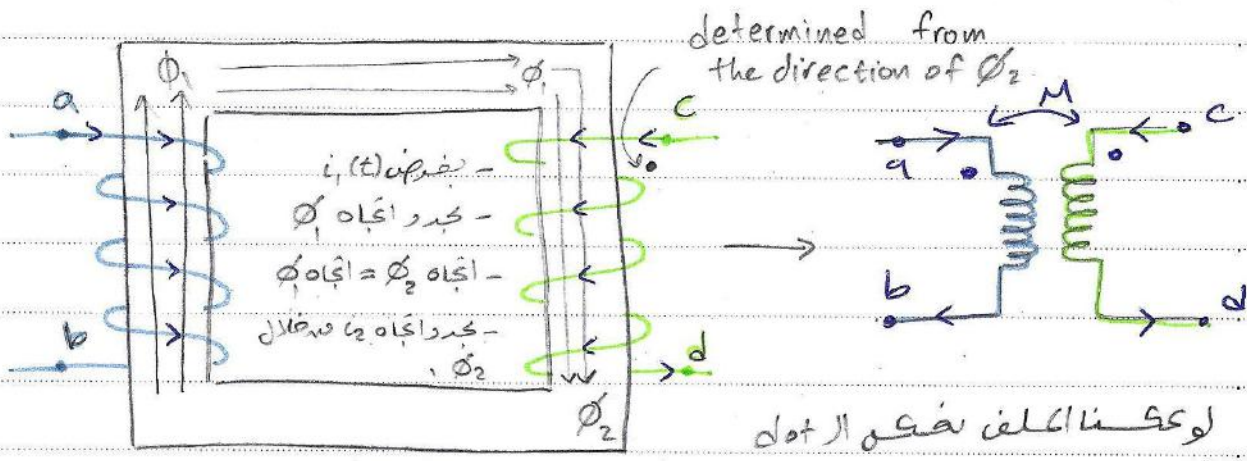 determined from
the direction of Ø₂
Ø₁
Ø₁
a
c
M
a
c
- بفرض i₁(t)
- نحدد اتجاه Ø₁
- اتجاه Ø₂ = اتجاه Ø₁
- نحدد اتجاه i₂ من خلال
Ø₂
b
d
b
d
Ø₂
لو عكسنا الملف نعكس ال dot